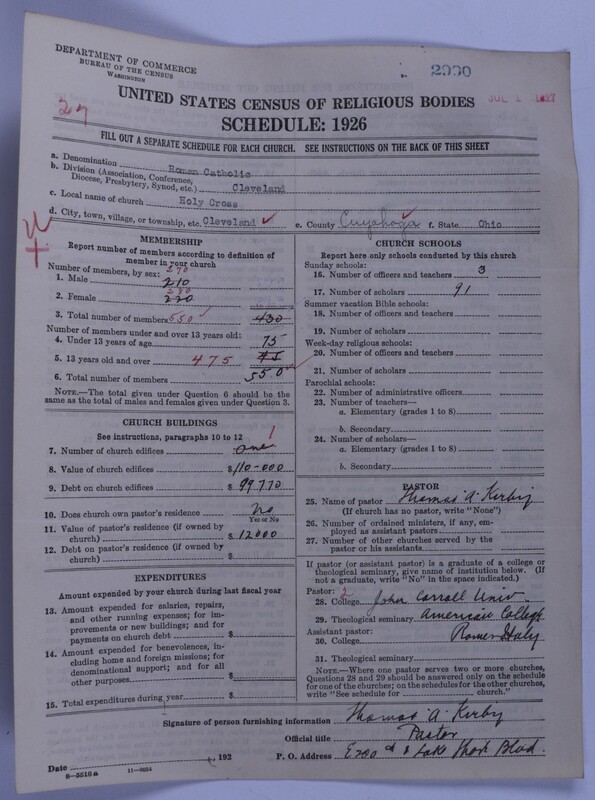 DEPARTMENT OF COMMERCE
BUREAU OF THE CENSUS
WASHINGTON
2990
JUL 1 1927
27
UNITED STATES CENSUS OF RELIGIOUS BODIES
SCHEDULE: 1926
FILL OUT A SEPARATE SCHEDULE FOR EACH CHURCH. SEE INSTRUCTIONS ON THE BACK OF THIS SHEET
a. Denomination Roman Catholic
b. Division (Association, Conference,
Diocese, Presbytery, Synod, etc.) Cleveland
c. Local name of church Holy Cross
d. City, town, village, or township, etc. Cleveland e. County Cuyahoga f. State Ohio
MEMBERSHIP
Report number of members according to definition of
member in your church
Number of members, by sex: 270
1. Male 210
280
2. Female 220
3. Total number of members 550 430
Number of members under and over 13 years old:
4. Under 13 years of age 75
5. 13 years old and over 475
6. Total number of members 550
NOTE.—The total given under Question 6 should be
same as the total of males and females given under Question 3.
CHURCH BUILDINGS
See instructions, paragraphs 10 to 12
7. Number of church edifices one 1
8. Value of church edifices $110-000
9. Debt on church edifices $ 99,770
10. Does church own pastor's residence? No
Yes or No
11. Value of pastor's residence (if owned by
church) $ 12000
12. Debt on pastor's residence (if owned by
church) $
EXPENDITURES
Amount expended by your church during last fiscal year
13. Amount expended for salaries, repairs,
and other running expenses; for im-
provements or new buildings; and for
payments on church debt $
14. Amount expended for benevolences, in-
cluding home and foreign missions; for
denominational support; and for all
other purposes $
15. Total expenditures during year $
CHURCH SCHOOLS
Report here only schools conducted by this church
Sunday schools:
16. Number of officers and teachers 3
17. Number of scholars 91
Summer vacation Bible schools:
18. Number of officers and teachers
19. Number of scholars
Week-day religious schools:
20. Number of officers and teachers
21. Number of scholars
Parochial schools:
22. Number of administrative officers
23. Number of teachers—
a. Elementary (grades 1 to 8)
b. Secondary
24. Number of scholars—
a. Elementary (grades 1 to 8)
b. Secondary
PASTOR
25. Name of pastor Thomas A. Kirby
(If church has no pastor, write "None")
26. Number of ordained ministers, if any, em-
ployed as assistant pastors
27. Number of other churches served by the
pastor or his assistants
If pastor (or assistant pastor) is a graduate of a college or
theological seminary, give name of institution below. (If
not a graduate, write "No" in the space indicated.)
Pastor: 2
28. College John Carroll Univ
29. Theological seminary American College
Assistant pastor: Rome Italy
30. College
31. Theological seminary
NOTE.—Where one pastor serves two or more churches,
Questions 28 and 29 should be answered only on the schedule
for one of the churches; on the schedules for the other churches,
write "See schedule for church."
Signature of person furnishing information Thomas A. Kirby
Official title Pastor
Date , 192 P. O. Address E 200 & Lake Shore Blvd.
8-5516a 11-9034